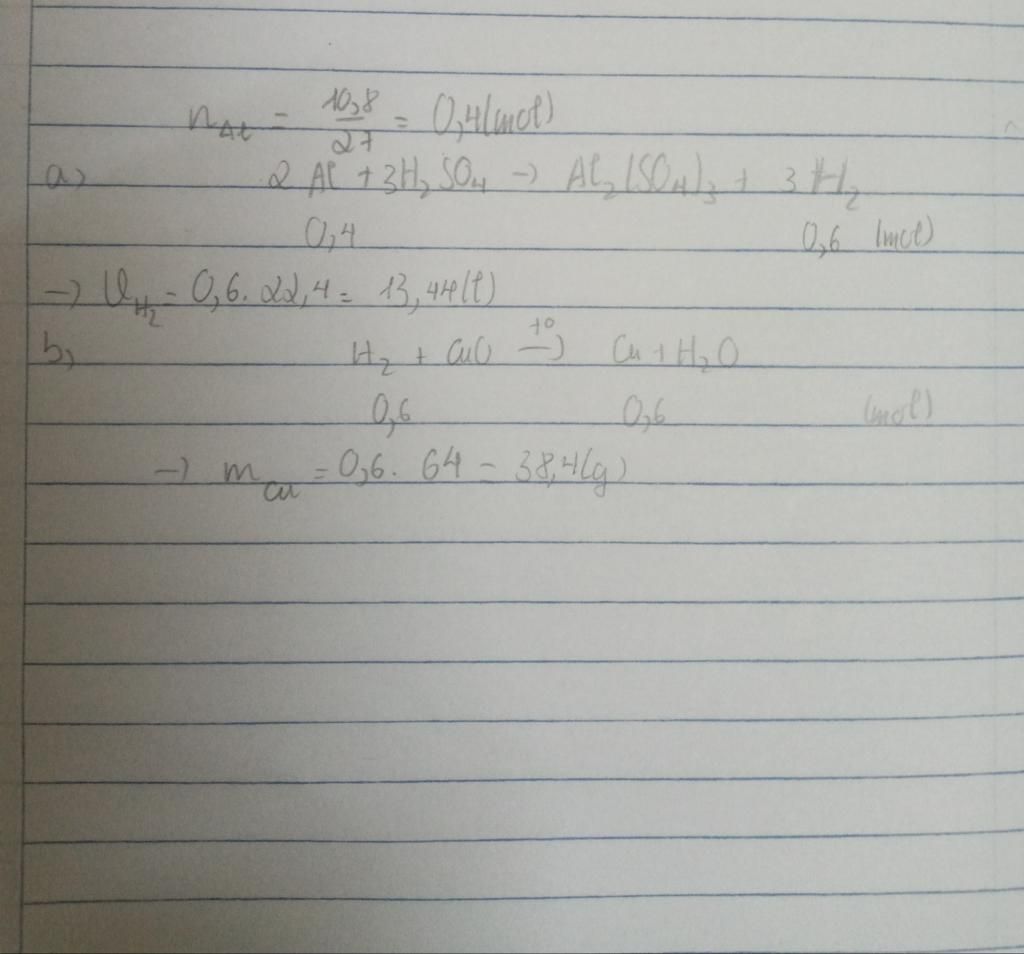 n_Al = 10,8/27 = 0,4 (mol)
a) 2 Al + 3H₂SO₄ → Al₂(SO₄)₃ + 3 H₂
0,4 0,6 (mol)
→ V_H₂ = 0,6. 22,4 = 13,44 (l)
b) H₂ + CuO –t°→ Cu + H₂O
0,6 0,6 (mol)
→ m_Cu = 0,6. 64 = 38,4 (g)